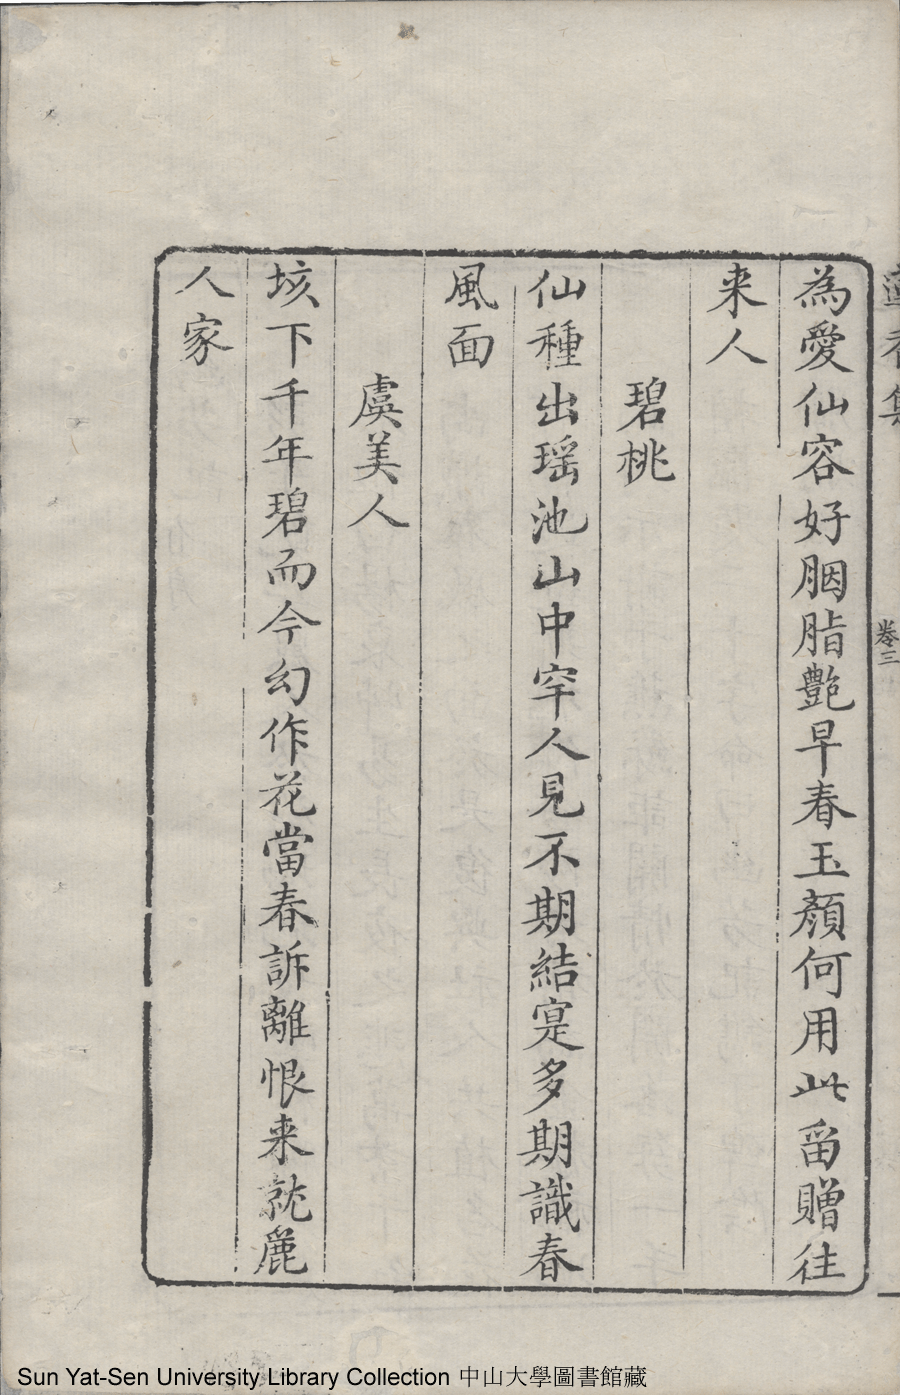 為愛仙容好胭脂艷早春玉顏何用此畱贈往
来人
碧桃
仙種出瑶池山中罕人見不期結寔多期識春
風面
虞美人
垓下千年碧而今幻作花當春訴離恨来就麗
人家
卷三
Sun Yat-Sen University Library Collection 中山大學圖書館藏